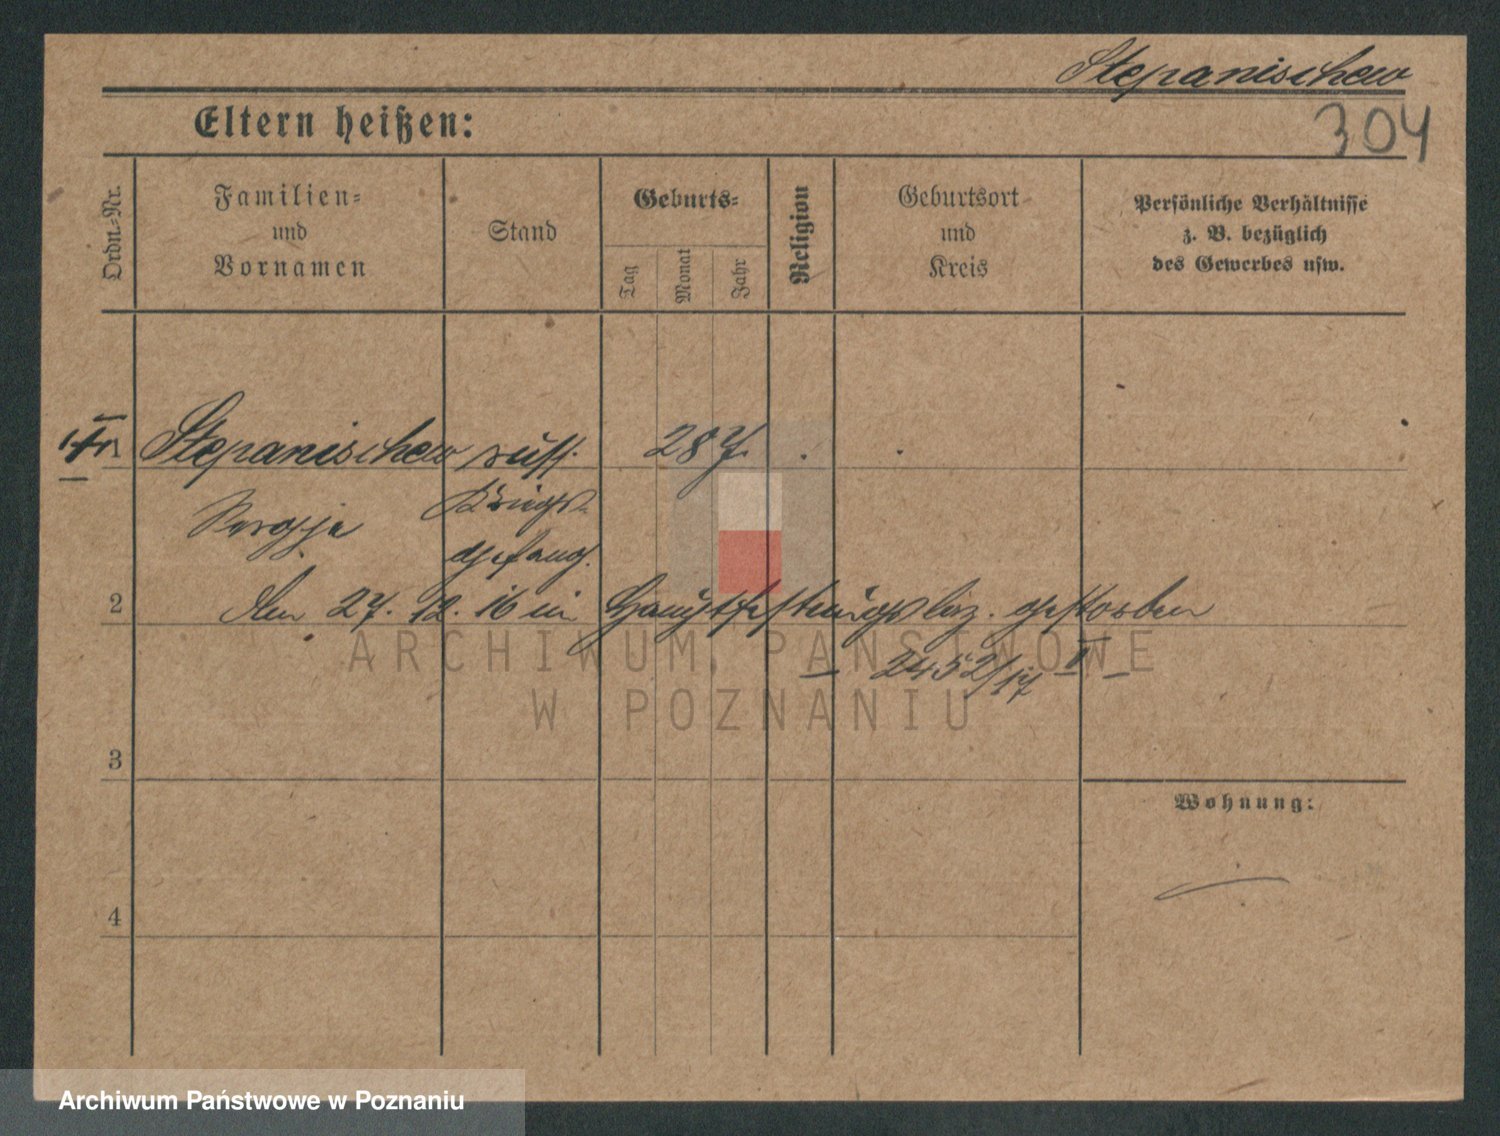 Stepanischew
304
Eltern heißen:
Ordn.-Nr.
Familien-
und
Vornamen
Stand
Geburts-
Tag
Monat
Jahr
Religion
Geburtsort
und
Kreis
Persönliche Verhältnisse
z. B. bezüglich
des Gewerbes usw.
1 Stepanischew russ. 28 J. . .
Sergje Kriegs-
gefang.
2 den 27. 12. 16 in Hauptfestungslaz. gestorben
- 2452/17 II -
ARCHIWUM PAŃSTWOWE
W POZNANIU
3
Wohnung:
4
Archiwum Państwowe w Poznaniu